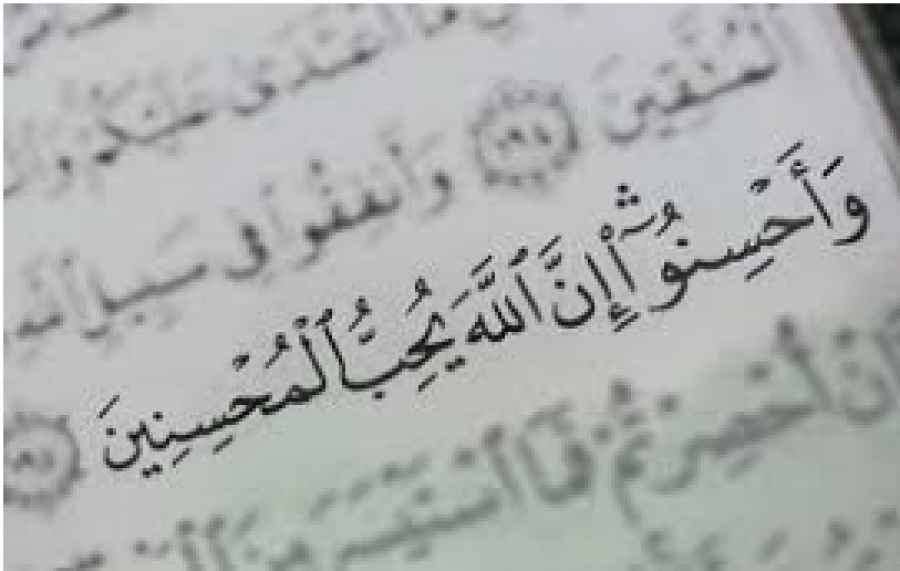 ٱعْتَدَىٰ عَلَيْكُمْ
ٱلْمُتَّقِينَ ١٩٤ وَأَنفِقُوا۟ فِى سَبِيلِ ٱللَّهِ
وَأَحْسِنُوٓا۟ إِنَّ ٱللَّهَ يُحِبُّ ٱلْمُحْسِنِينَ
فَإِنْ أُحْصِرْتُمْ فَمَا ٱسْتَيْسَرَ مِنَ